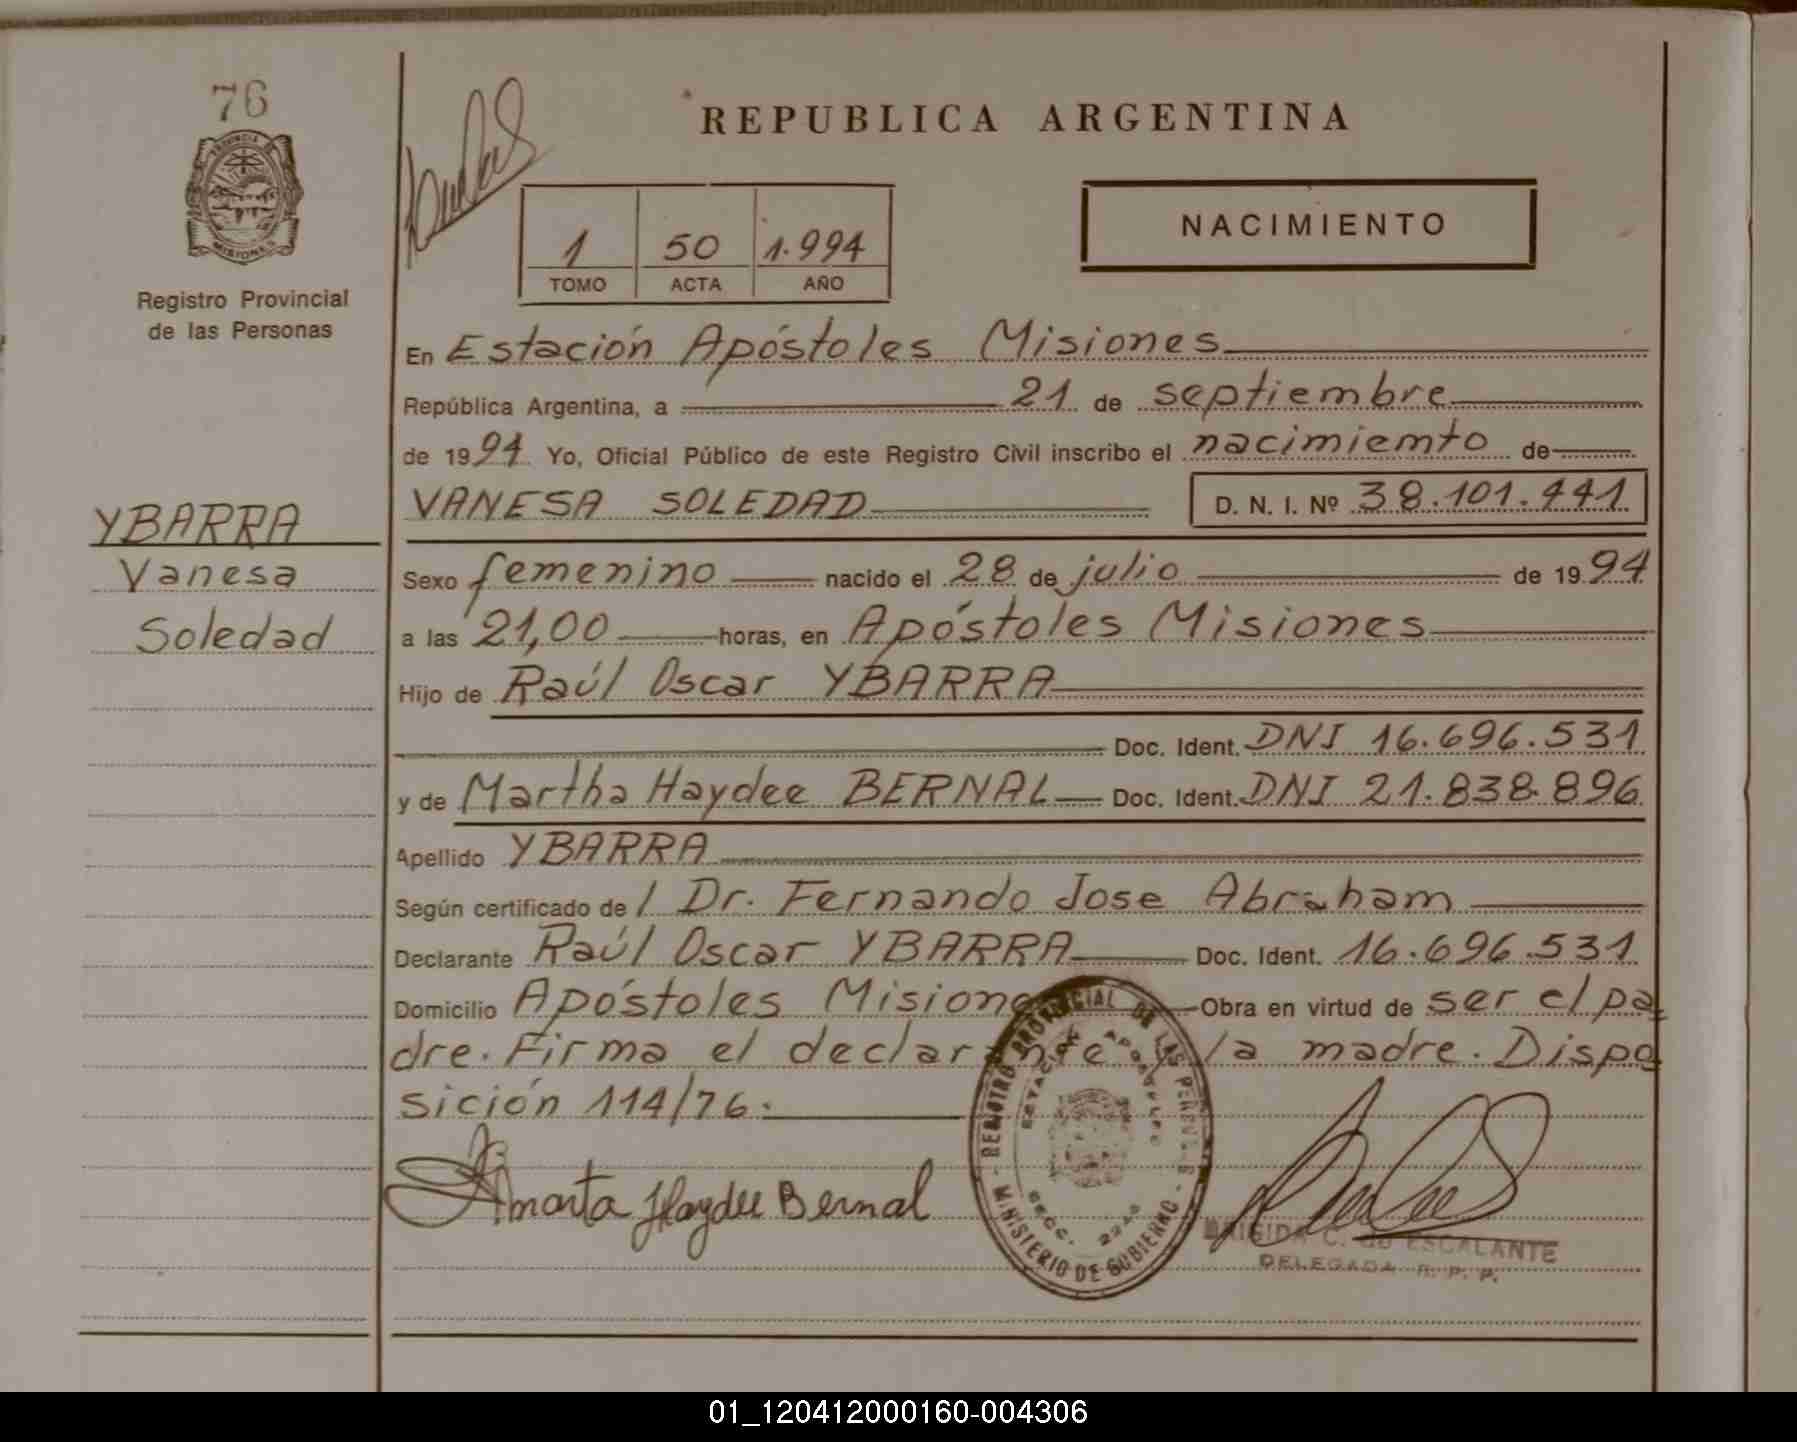 76
PROVINCIA DE
MISIONES
Registro Provincial
de las Personas
YBARRA
Vanesa
Soledad
REPUBLICA ARGENTINA
1 50 1.994
TOMO ACTA AÑO
NACIMIENTO
En Estación Apóstoles Misiones
República Argentina, a 21 de septiembre
de 1994 Yo, Oficial Público de este Registro Civil inscribo el nacimiemto de
VANESA SOLEDAD D. N. I. Nº 38.101.441
Sexo femenino nacido el 28 de julio de 1994
a las 21,00 horas, en Apóstoles Misiones
Hijo de Raúl Oscar YBARRA
Doc. Ident. DNI 16.696.531
y de Martha Haydee BERNAL Doc. Ident. DNI 21.838.896
Apellido YBARRA
Según certificado de / Dr. Fernando Jose Abraham
Declarante Raúl Oscar YBARRA Doc. Ident. 16.696.531
Domicilio Apóstoles Misiones Obra en virtud de ser el pa
dre. Firma el declarante y la madre. Dispo
sición 114/76.
marta Haydee Bernal
REGISTRO PROVINCIAL DE LAS PERSONAS
ESTACION APOSTOLES
SECC. 2240
- MINISTERIO DE GOBIERNO -
BRIGIDA C. de ESCALANTE
DELEGADA R. P. P.
01_120412000160-004306